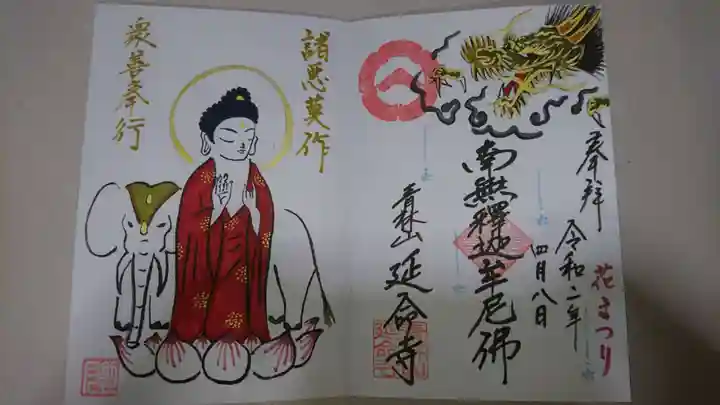 奉拝
花まつり
令和二年
四月八日
南無釋迦牟尼佛
青林山延命寺
諸悪莫作
衆善奉行